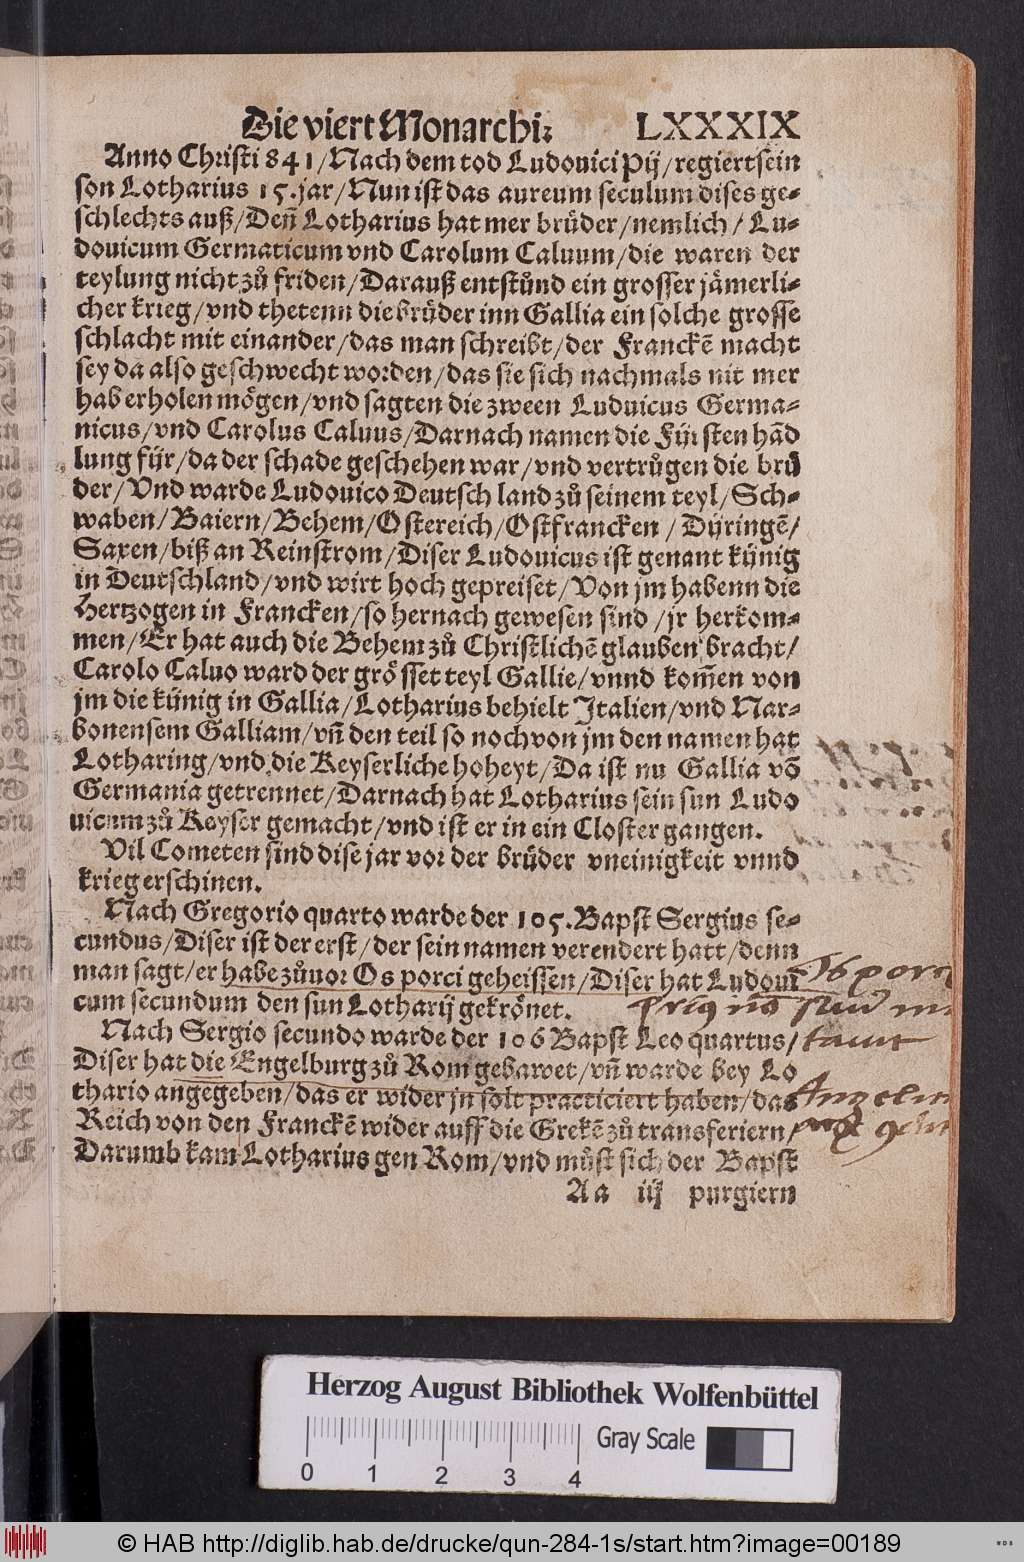 Die viert Monarchi: LXXXIX
Anno Christi 841/Nach dem tod Ludouici Pij/regiert sein
son Lotharius 15.jar/Nun ist das aureum seculum dises ge-
schlechts auß/Deñ Lotharius hat mer brůder/nemlich/Lu-
douicum Germaticum vnd Carolum Caluum/die waren der
teylung nicht zů friden/Darauß entstůnd ein grosser jämerli-
cher krieg/vnd thetenn die brůder inn Gallia ein solche grosse
schlacht mit einander/das man schreibt/der Franckẽ macht
sey da also geschwecht worden/das sie sich nachmals nit mer
hab erholen mögen/vnd sagten die zween Luduicus Germa-
nicus/vnd Carolus Caluus/Darnach namen die Fürsten hãd
lung für/da der schade geschehen war/vnd vertrůgen die brů
der/Vnd warde Ludouico Deutsch land zů seinem teyl/Sch-
waben/Baiern/Behem/Ostereich/Ostfrancken/Düringẽ/
Saxen/biß an Reinstrom/Diser Ludouicus ist genant künig
in Deutschland/vnd wirt hoch gepreiset/Von jm habenn die
Hertzogen in Francken/so hernach gewesen sind/jr herkom-
men/Er hat auch die Behem zů Christlichẽ glauben bracht/
Carolo Caluo ward der grösset teyl Gallie/vnnd kom̃en von
jm die künig in Gallia/Lotharius behielt Italien/vnd Nar-
bonensem Galliam/vñ den teil so noch von jm den namen hat
Lotharing/vnd die Keyserliche hoheyt/Da ist nu Gallia võ
Germania getrennet/Darnach hat Lotharius sein sun Ludo
uicum zů Keyser gemacht/vnd ist er in ein Closter gangen.
Vil Cometen sind dise jar vor der brůder vneinigkeit vnnd
krieg erschinen.
Nach Gregorio quarto warde der 105.Bapst Sergius se-
cundus/Diser ist der erst/der sein namen verendert hatt/denn
man sagt/er habe zůuor Os porci geheissen/Diser hat Ludoui
cum secundum den sun Lotharij gekrönet.
Nach Sergio secundo warde der 106 Bapst Leo quartus/
Diser hat die Engelburg zů Rom gebawet/vñ warde bey Lo
thario angegeben/das er wider jn solt practiciert haben/das
Reich von den Franckẽ wider auff die Grekẽ zů transferiern/
Darumb kam Lotharius gen Rom/vnd můst sich der Bapst
Aa iij purgiern
Herzog August Bibliothek Wolfenbüttel
Gray Scale
0 1 2 3 4
© HAB http://diglib.hab.de/drucke/qun-284-1s/start.htm?image=00189